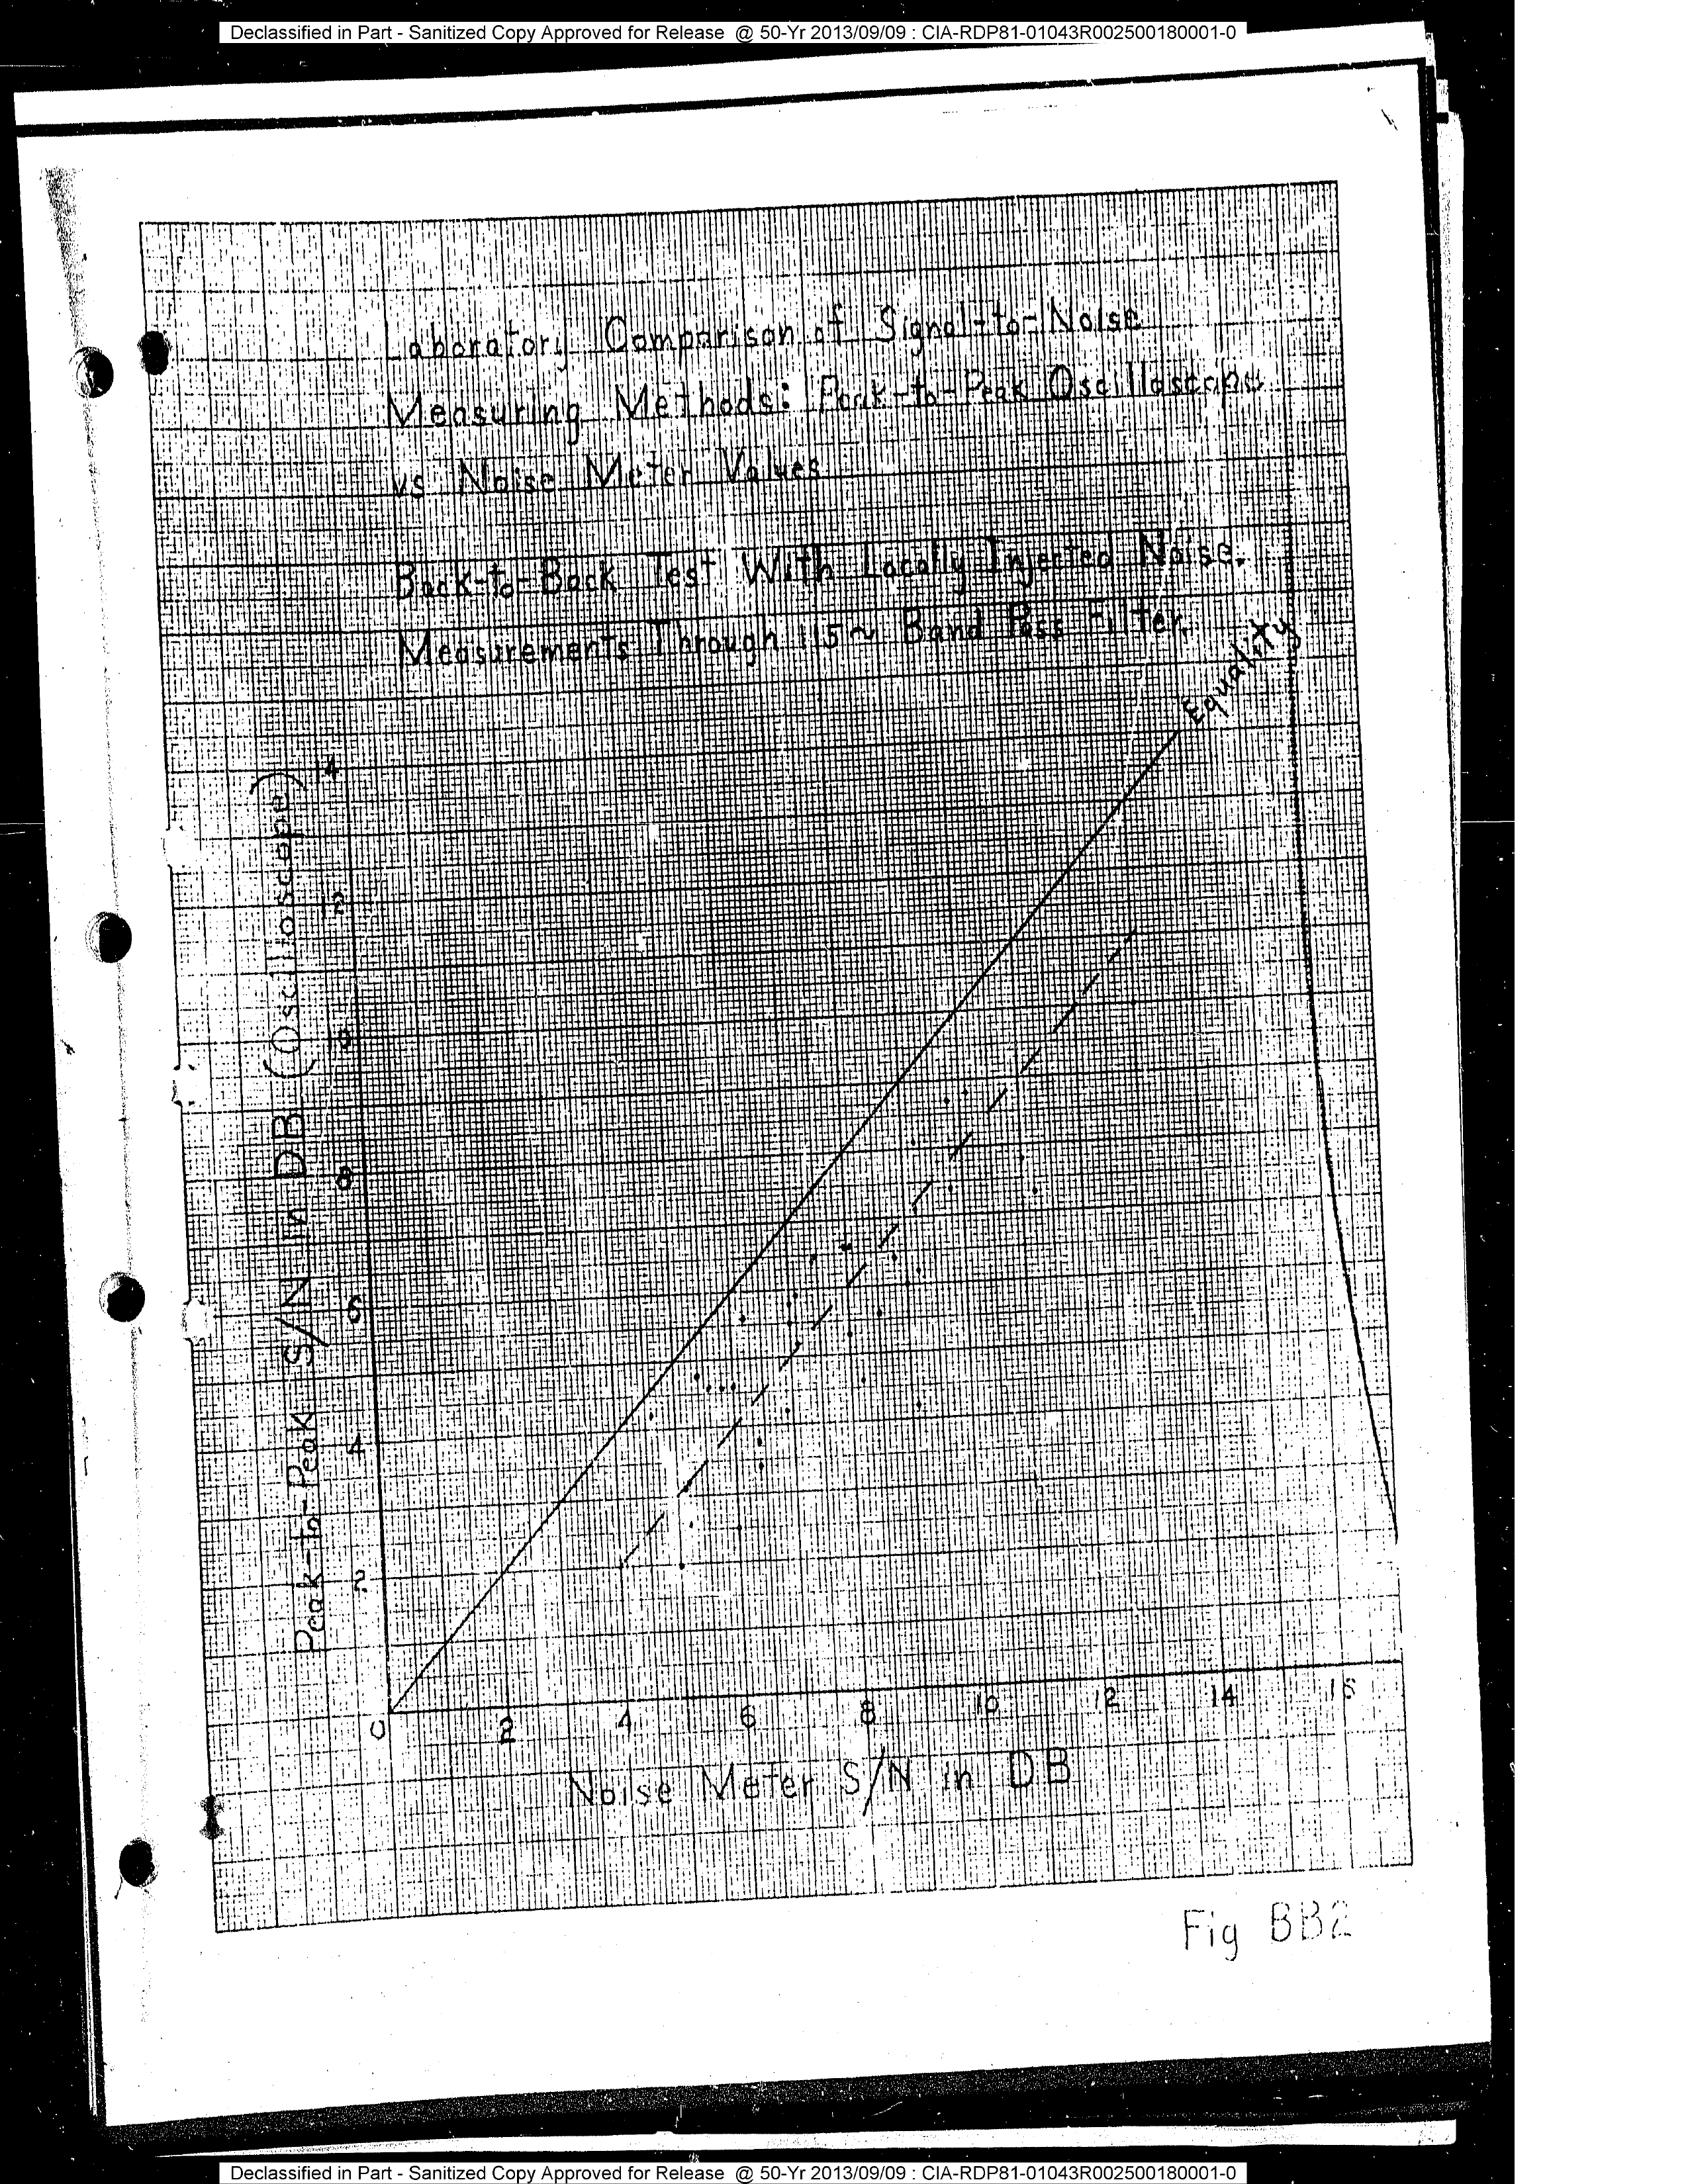 Declassified in Part - Sanitized Copy Approved for Release @ 50-Yr 2013/09/09 : CIA-RDP81-01043R002500180001-0
Laboratory Comparison of Signal-to-Noise
Measuring Methods: Peak-to-Peak Oscilloscope
vs Noise Meter Values
Back-to-Back Test With Locally Injected Noise.
Measurements Through 115~ Band Pass Filter.
Equality
Peak-to-Peak S/N in DB (Oscilloscope)
14
12
10
8
6
4
2
0 2 4 6 8 10 12 14 16
Noise Meter S/N in DB
Fig BB2
Declassified in Part - Sanitized Copy Approved for Release @ 50-Yr 2013/09/09 : CIA-RDP81-01043R002500180001-0